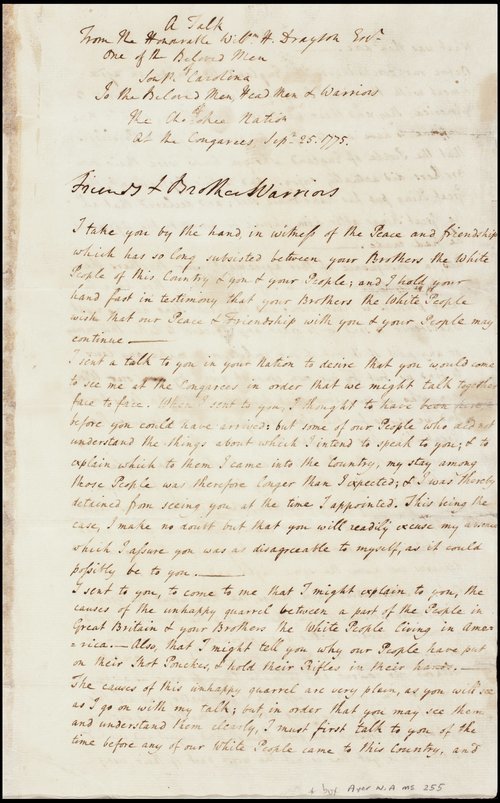 A Talk
From the Honorable Will.m H. Drayton Esq.r
One of the Beloved Men
of
South Carolina
To the Beloved Men, Head Men & Warriors
of
The Cherokee Nation
At the Congarees Sep.r 25. 1775.
Friends & Brother Warriors
I take you by the hand, in witness of the Peace and friendship
which has so long subsisted between your Brothers the White
People of this Country & you & your People; and I hold your
hand fast in testimony that your Brothers the White People
wish that our Peace & Friendship with you & your People may
continue —
I sent a talk to you in your Nation to desire that you would come
to see me at the Congarees in order that we might talk together
face to face. When I sent to you, I thought to have been here
before you could have arrived; but some of our People who did not
understand the things about which I intend to speak to you; & to
explain which to them I came into the Country, my stay among
those People was therefore longer than I expected; & I was thereby
detained from seeing you at the time I appointed. This being the
case, I make no doubt but that you will readily excuse my absence
which I assure you was as disagreeable to myself, as it could
possibly be to you. —
I sent to you, to come to me that I might explain to you, the
causes of the unhappy quarrel between a part of the People in
Great Britain & your Brothers the White People living in Ame-
-rica. — Also, that I might tell you why our People have put
on their Shot Pouches, & hold their Rifles in their hands. —
The causes of this unhappy quarrel are very plain, as you will see
as I go on with my talk; but, in order that you may see them
and understand them clearly, I must first talk to you of the
time before any of our White People came to this Country, and
Ayer N.A ms 255